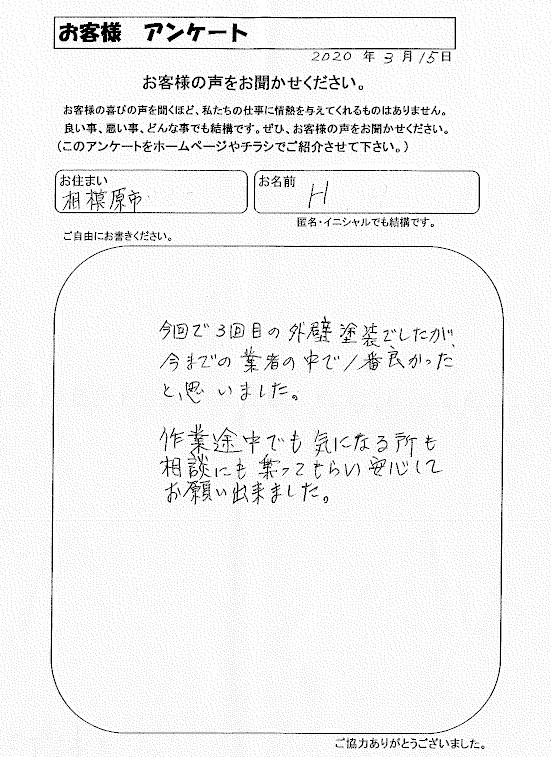 お客様 アンケート
2020 年 3 月 15 日
お客様の声をお聞かせください。
お客様の喜びの声を聞くほど、私たちの仕事に情熱を与えてくれるものはありません。
良い事、悪い事、どんな事でも結構です。ぜひ、お客様の声をお聞かせください。
(このアンケートをホームページやチラシでご紹介させて下さい。)
お住まい
相模原市
お名前
H
匿名・イニシャルでも結構です。
ご自由にお書きください。
今回で3回目の外壁塗装でしたが、
今までの業者の中で1番良かった
と、思いました。
作業途中でも気になる所も
相談にも乗ってもらい安心して
お願い出来ました。
ご協力ありがとうございました。